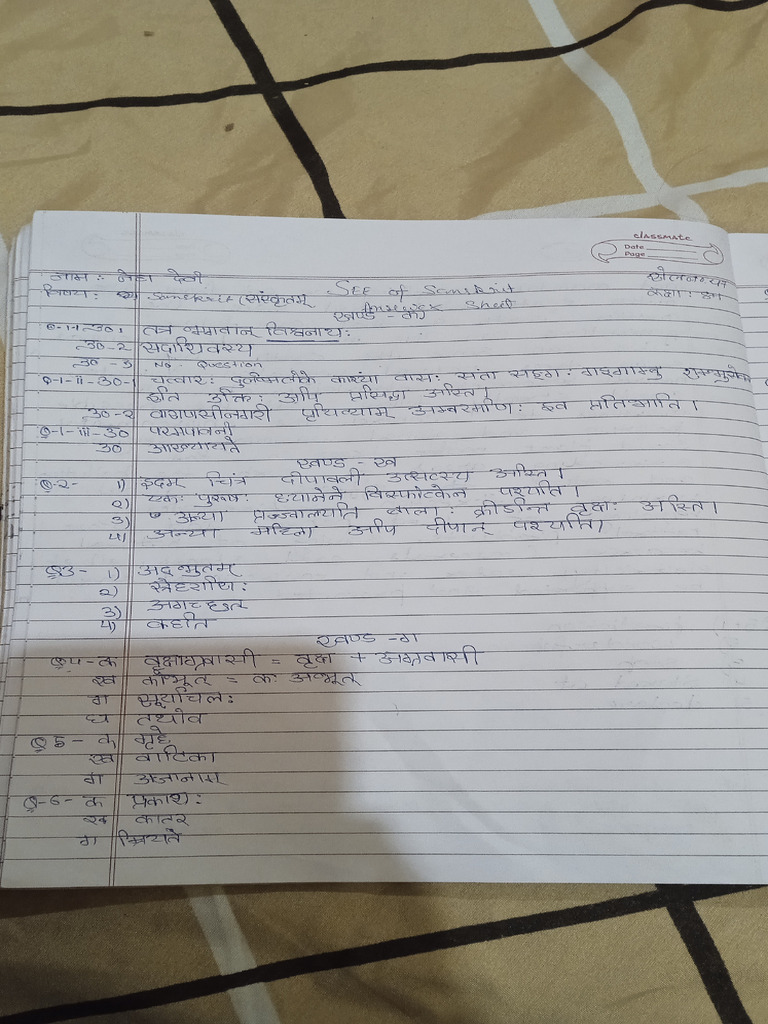 classmate
Date
Page
नाम : नेहा देवी
विषय : Sanskrit (संस्कृतम्
SEE of Sanskrit
कक्षा :
Answer Sheet
खण्ड - क)
Q-1-i-उ०1 तत्र भगवान् विश्वनाथ:
उ०-2 सदाशिवस्य
उ० - 3 No Question
Q-1-ii-उ०-1 चत्वार: दुर्लभालोके काश्यां वास: सतां सङ्ग: गङ्गाम्बु
इति उक्ति: अपि प्रसिद्धा अस्ति।
उ०-2 वाराणसीनगरी पृथिव्याम् अम्बरमणि: इव प्रतिभाति।
Q-1-iii-उ० परमपावनी
उ० आख्यायते
खण्ड - ख
Q-2- 1) इदम् चित्रं दीपावली उत्सवस्य अस्ति।
2) एक: पुरुष: ध्यानेने विस्फोटकेन पश्यति।
3) प्रज्ज्वालयति बाला: क्रीडन्ति वृक्ष: अस्ति।
4) अन्या महिला अपि दीपान् पश्यति।
Q3- 1) अद्भुतम्
2)
3) अगच्छत
4)
खण्ड -ग
Q4- क वृक्षाग्रवासी = वृक्ष + अग्रवासी
ख कोभूत् = क: अभूत्
ग
घ तथैव
Q5- क गृहे
ख वाटिका
ग अजानाम्
Q-6- क प्रकाश:
ख कातर
ग म्रियते